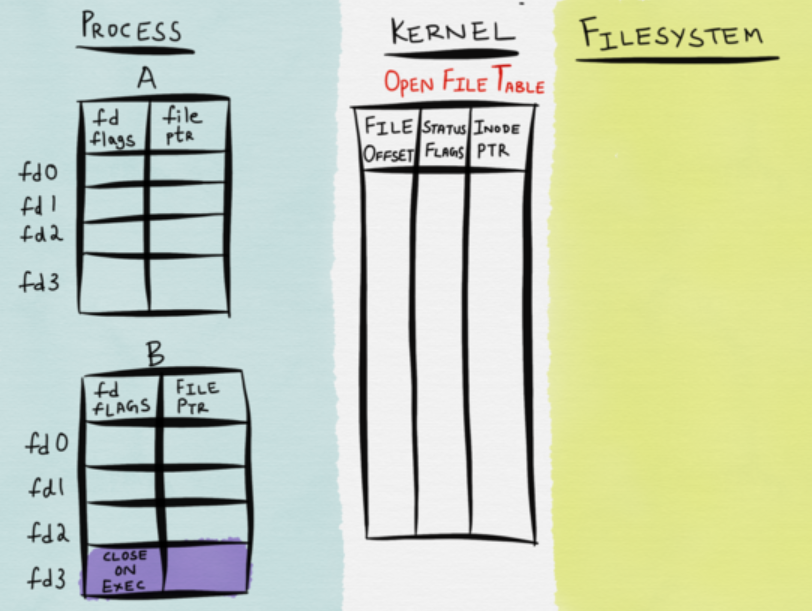 PROCESS
A
fd flags
file ptr
fd0
fd1
fd2
fd3
B
fd FLAGS
FILE PTR
fd0
fd1
fd2
fd3
CLOSE ON EXEC
KERNEL
OPEN FILE TABLE
FILE OFFSET
STATUS FLAGS
INODE PTR
FILESYSTEM